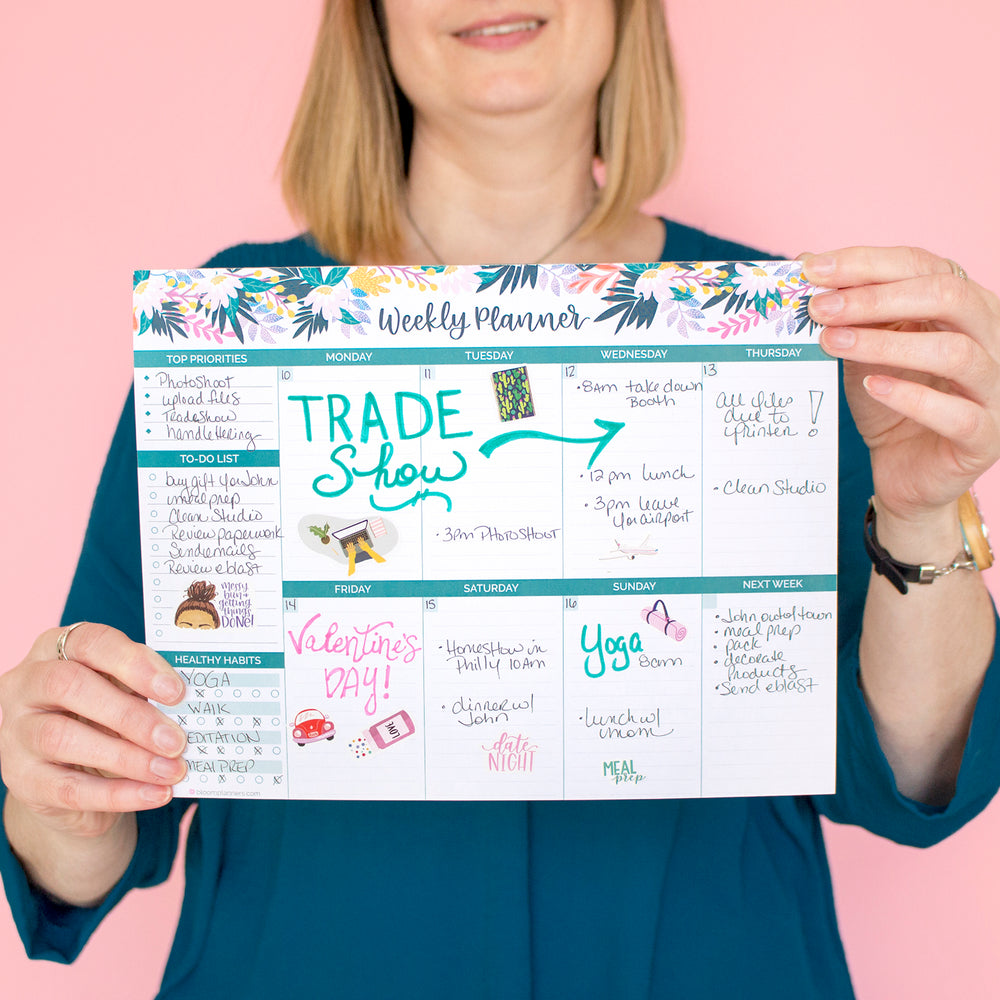 Weekly Planner
TOP PRIORITIES
PHOTOSHOOT
upload files
Tradeshow
handlettering
TO-DO LIST
buy gift for John
meal prep
Clean Studio
Review paperwork
Send emails
Review eblast
messy
bun +
getting
things
DONE!
HEALTHY HABITS
YOGA
WALK
MEDITATION
MEAL PREP
bloomplanners.com
MONDAY
10
TRADE
Show
TUESDAY
11
3pm PHOTOSHOOT
WEDNESDAY
12
8am take down
Booth
12 pm lunch
3pm leave
for airport
THURSDAY
13
All files
due to
printer !
Clean Studio
FRIDAY
14
Valentine's
DAY!
LOVE
SATURDAY
15
Homeshow in
Philly 10am
dinner w/
John
date
NIGHT
SUNDAY
16
Yoga
8am
lunch w/
mom
MEAL
prep
NEXT WEEK
John out of town
meal prep
pack
decorate
products
Send eblast